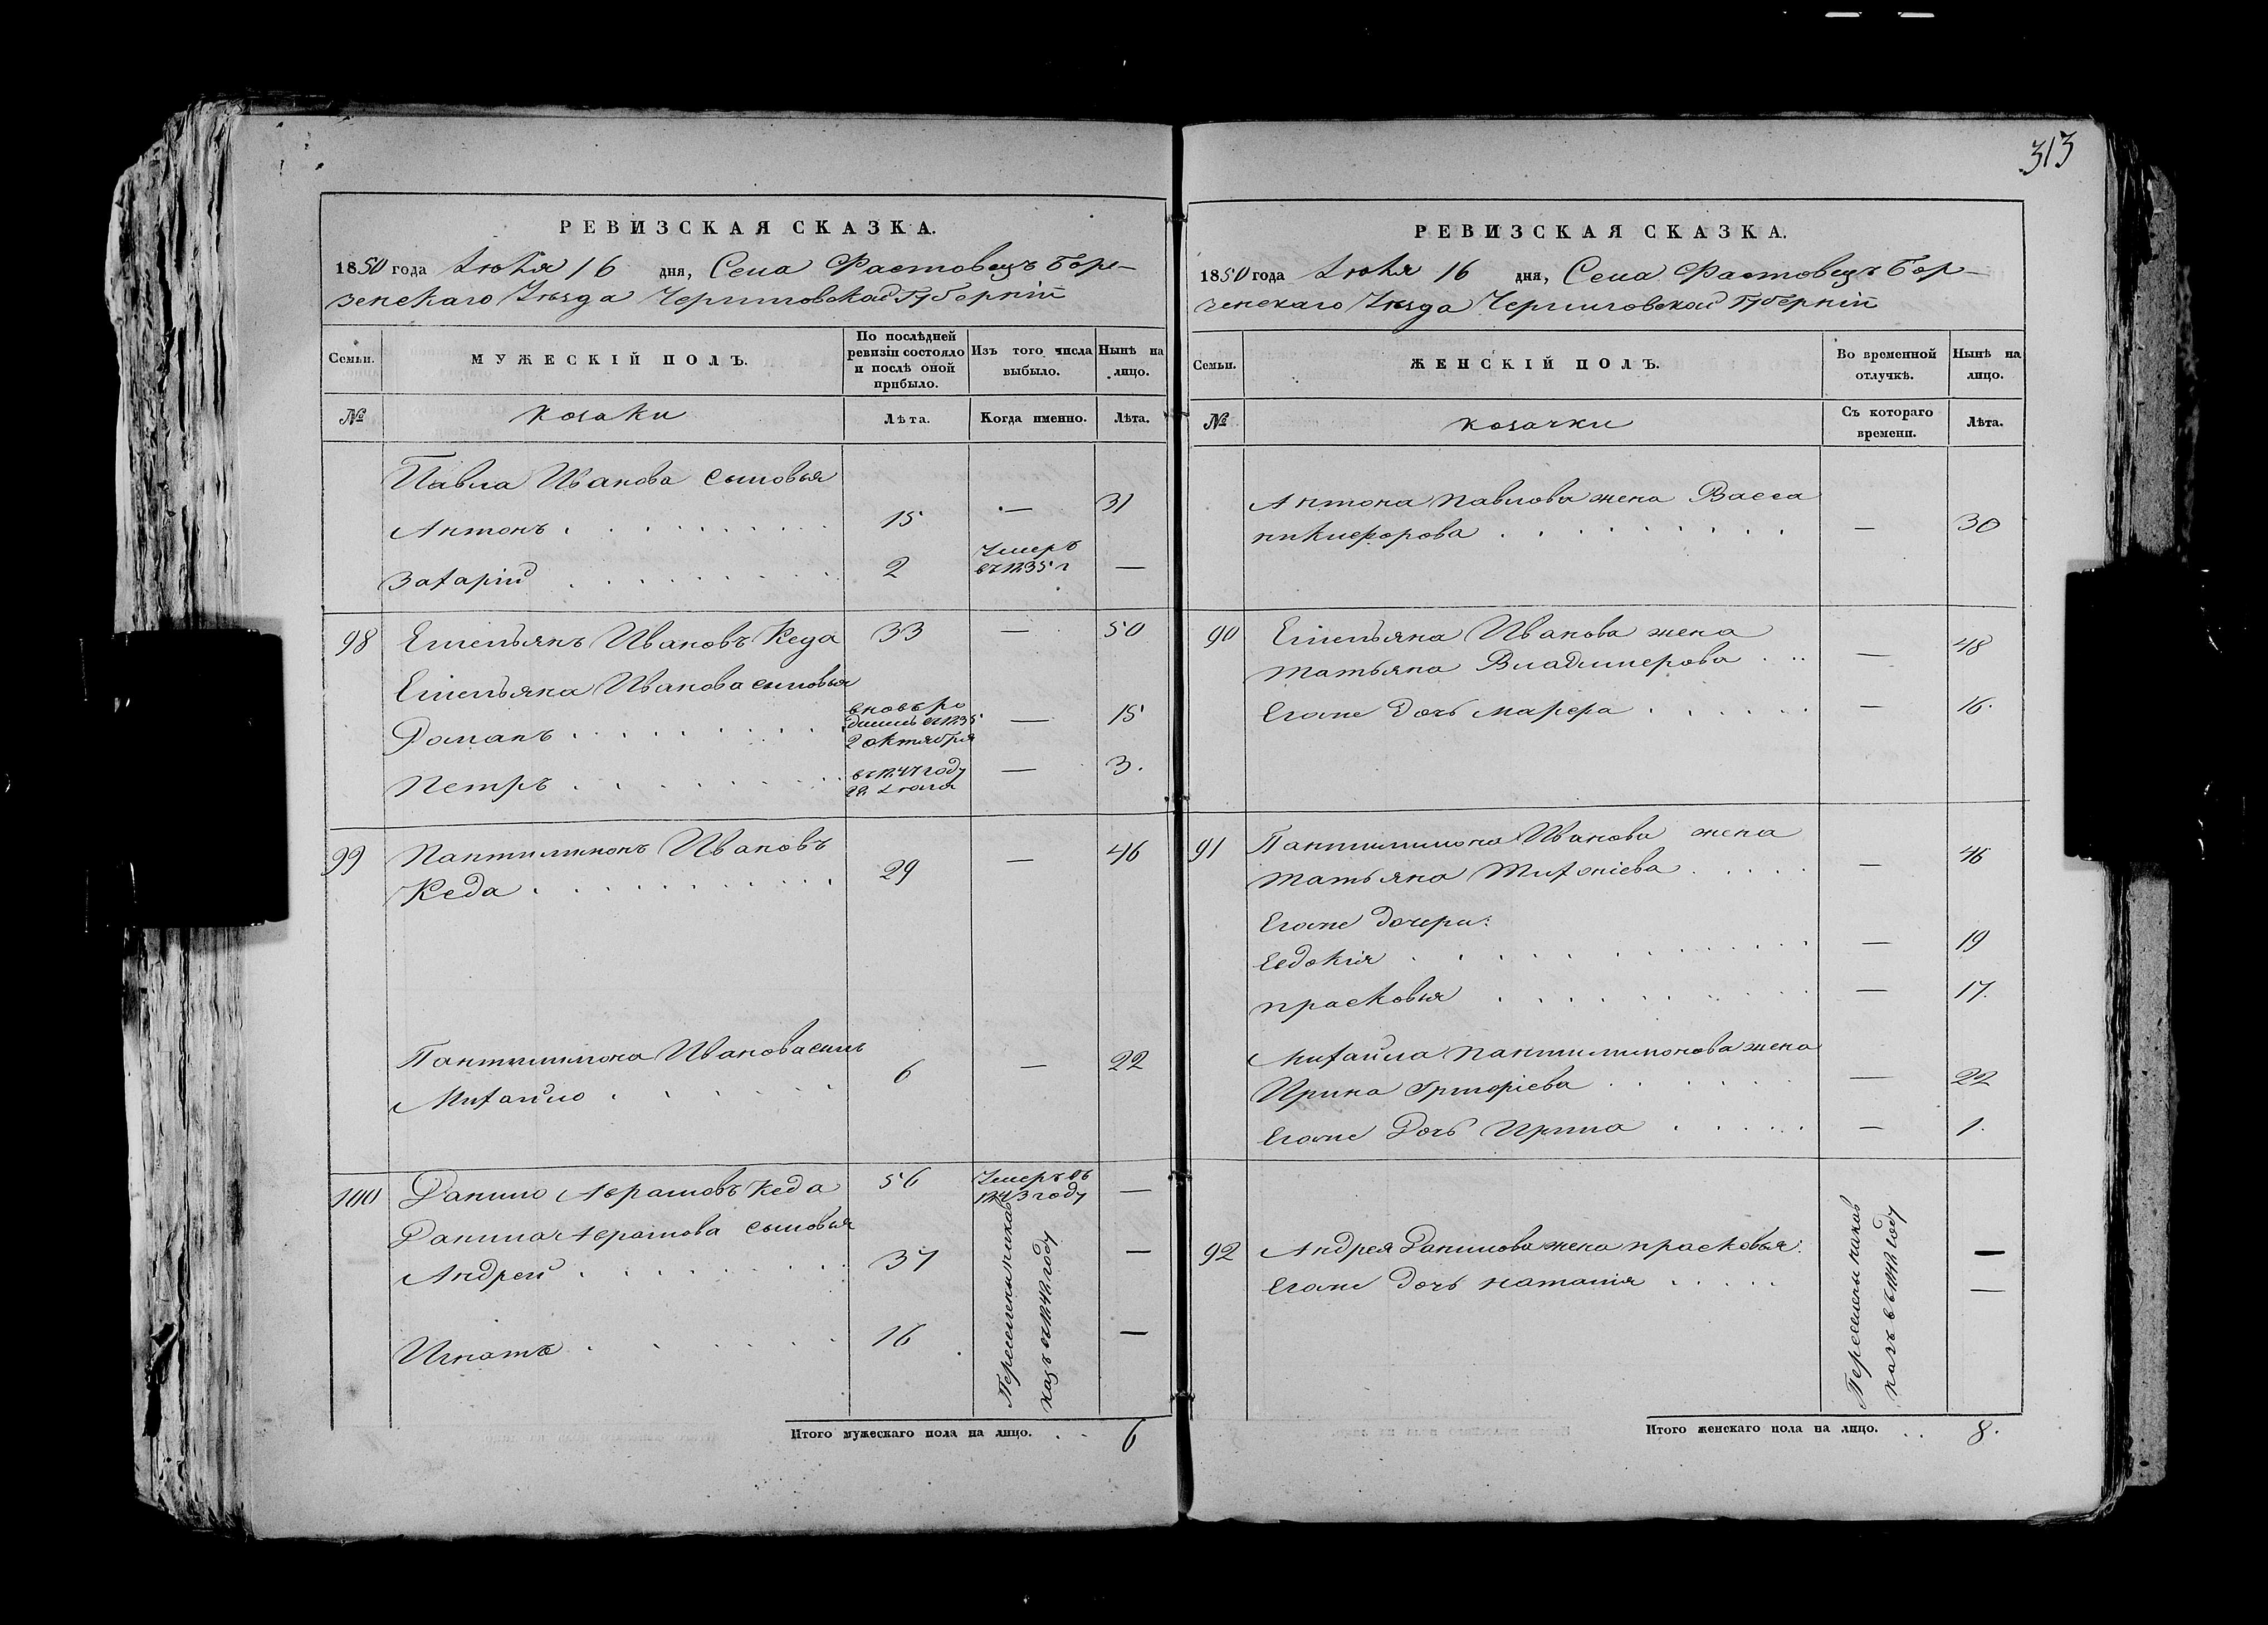 313
РЕВИЗСКАЯ СКАЗКА.
1850 года Июня 16 дня, Села Фастовецъ Бор-
зенскаго Уезда Черниговской Губерніи
Семьи.
МУЖЕСКІЙ ПОЛЪ.
По послѣдней ревизіи состояло и послѣ оной прибыло.
Изъ того числа выбыло.
Нынѣ на лицо.
№
козаки
Лѣта.
Когда именно.
Лѣта.
Павла Иванова сыновья
Антонъ 15 — 31
Захарій 2 Умеръ въ 1835 г —
98 Емельянъ Ивановъ Кеда 33 — 50
Емельяна Иванова сыновья
Романъ вновь родился въ 1835 2 октября — 15
Петръ въ 1847 году 29 Іюля — 3.
99 Пантилимонъ Ивановъ
Кеда 29 — 46
Пантилимона Иванова сынъ
Михайло 6 — 22
100 Данило Аврамовъ Кеда 56 Умеръ въ 1843 году —
Данила Аврамова сыновья
Андрей 37 —
Игнатъ 16 —
Переселены на кавказъ въ 1842 году
Итого мужескаго пола на лицо. 6
РЕВИЗСКАЯ СКАЗКА.
1850 года Июня 16 дня, Села Фастовецъ Бор-
зенскаго Уезда Черниговской Губерніи
Семьи.
ЖЕНСКІЙ ПОЛЪ.
Во временной отлучкѣ.
Нынѣ на лицо.
№
козачки
Съ котораго времени.
Лѣта.
Антона Павлова жена Васса
никифорова — 30
90 Емельяна Иванова жена
татьяна Владимерова — 48
Егоже дочь марфра — 16.
91 Пантилимона Иванова жена
татьяна тихоніева — 46
Егоже дочери:
Евдокия — 19
прасковья — 17.
Михайла пантилимонова жена
Ирина Григоріева — 22
Егоже дочь Ирина — 1.
92 Андрея Данилова жена прасковья. —
Егоже дочь наталия —
Переселены на кавказъ въ 1842 году
Итого женскаго пола на лицо. 8.